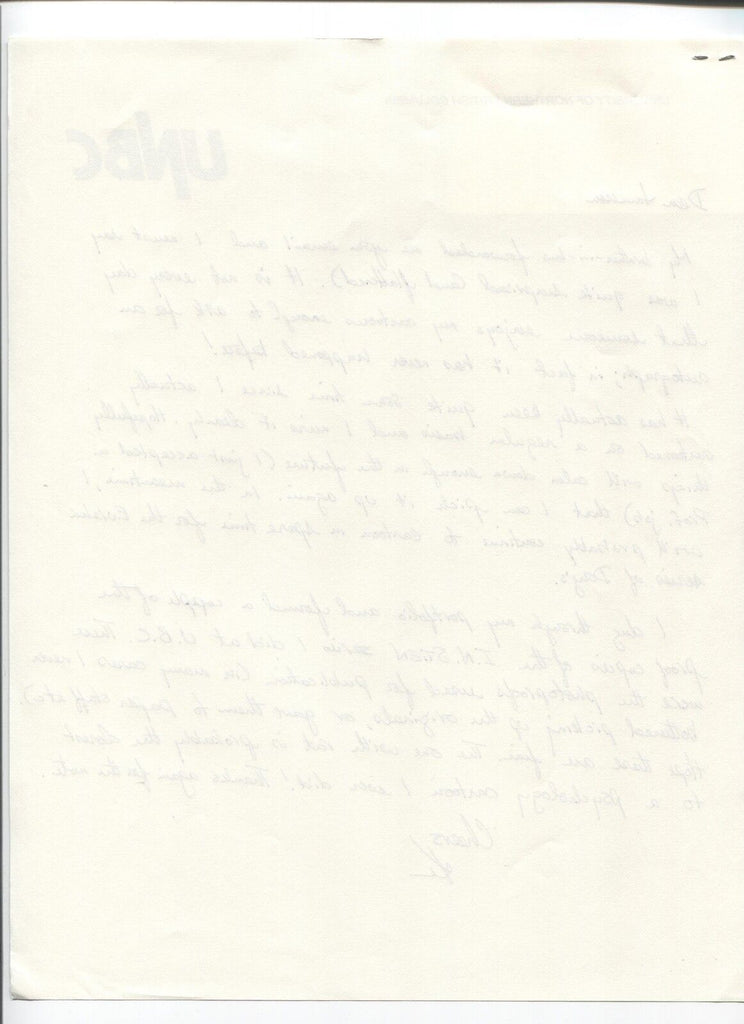 UNIVERSITY OF NORTHERN BRITISH COLUMBIA
UNBC
Dear
My brother-in-law forwarded me your email and I must say
I was quite surprised (and flattered). It is not every day
that someone enjoys my cartoons enough to ask for an
autograph; in fact it has never happened before!
It has actually been quite some time since I actually
cartooned on a regular basis and I miss it dearly. Hopefully
things will calm down enough in the future (I just accepted a
Prof. job) that I can pick it up again. In the meantime, I
will probably continue to cartoon in spare time for the
series of Day's.
I dug through my portfolio and found a couple of the
proof copies of the series I did at U.B.C. These
were the photoproofs used for publication (in many cases I never
bothered picking up the originals, or gave them to paper staff etc).
Hope these are fine. The one with rat is probably the closest
to a psychology cartoon I ever did! Thanks again for the note.
Cheers